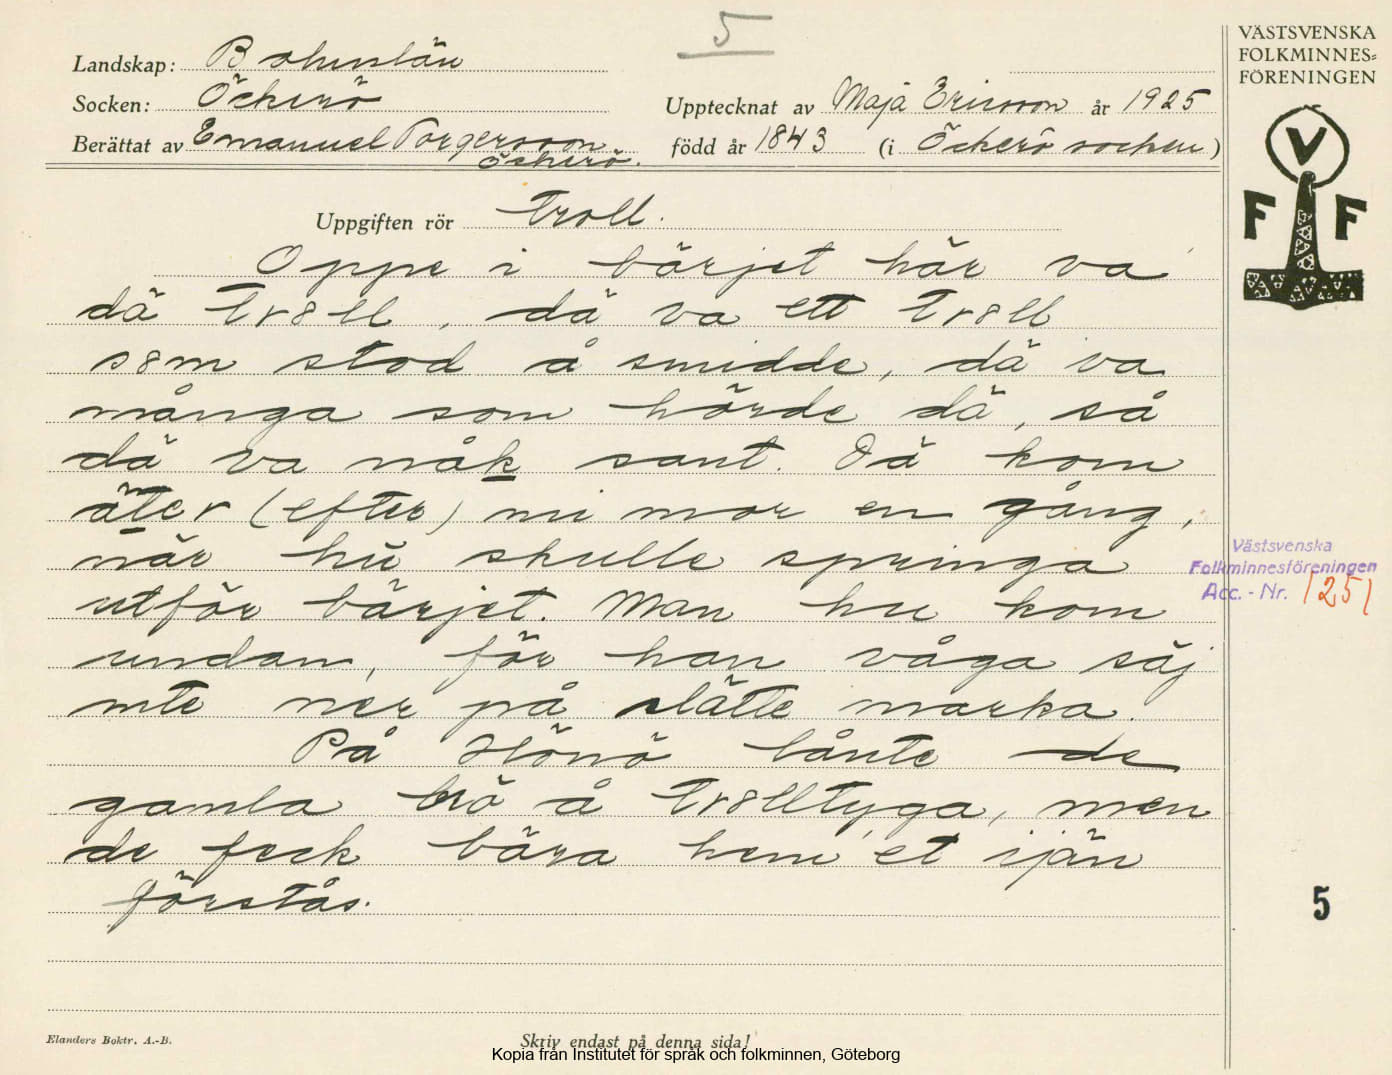 5
VÄSTSVENSKA
FOLKMINNES=
FÖRENINGEN
Landskap: Bohuslän
Socken: Öckerö
Upptecknat av Maja Ericsson år 1925
Berättat av Emanuel Torgersson
Öckerö.
född år 1843 (i Öckerö socken)
V
F F
Uppgiften rör Troll.
Oppe i bärjet här va
dä tr8ll, dä va ett tr8ll
s8m stod å smidde, dä va
många som hörde dä, så
dä va nåk sant. Dä kom
äter (efter) mi mor en gång,
när hu skulle springa
utför bärjet. Man hu kom
undan, för han våga säj
inte ner på slätte marka.
På Hönö lånte de
gamla brö å tr8lltyga, men
de feck bära hem et ijän
förstås.
Västsvenska
Folkminnesföreningen
Acc. - Nr. 1251
5
Elanders Boktr. A.-B.
Skriv endast på denna sida!
Kopia från Institutet för språk och folkminnen, Göteborg